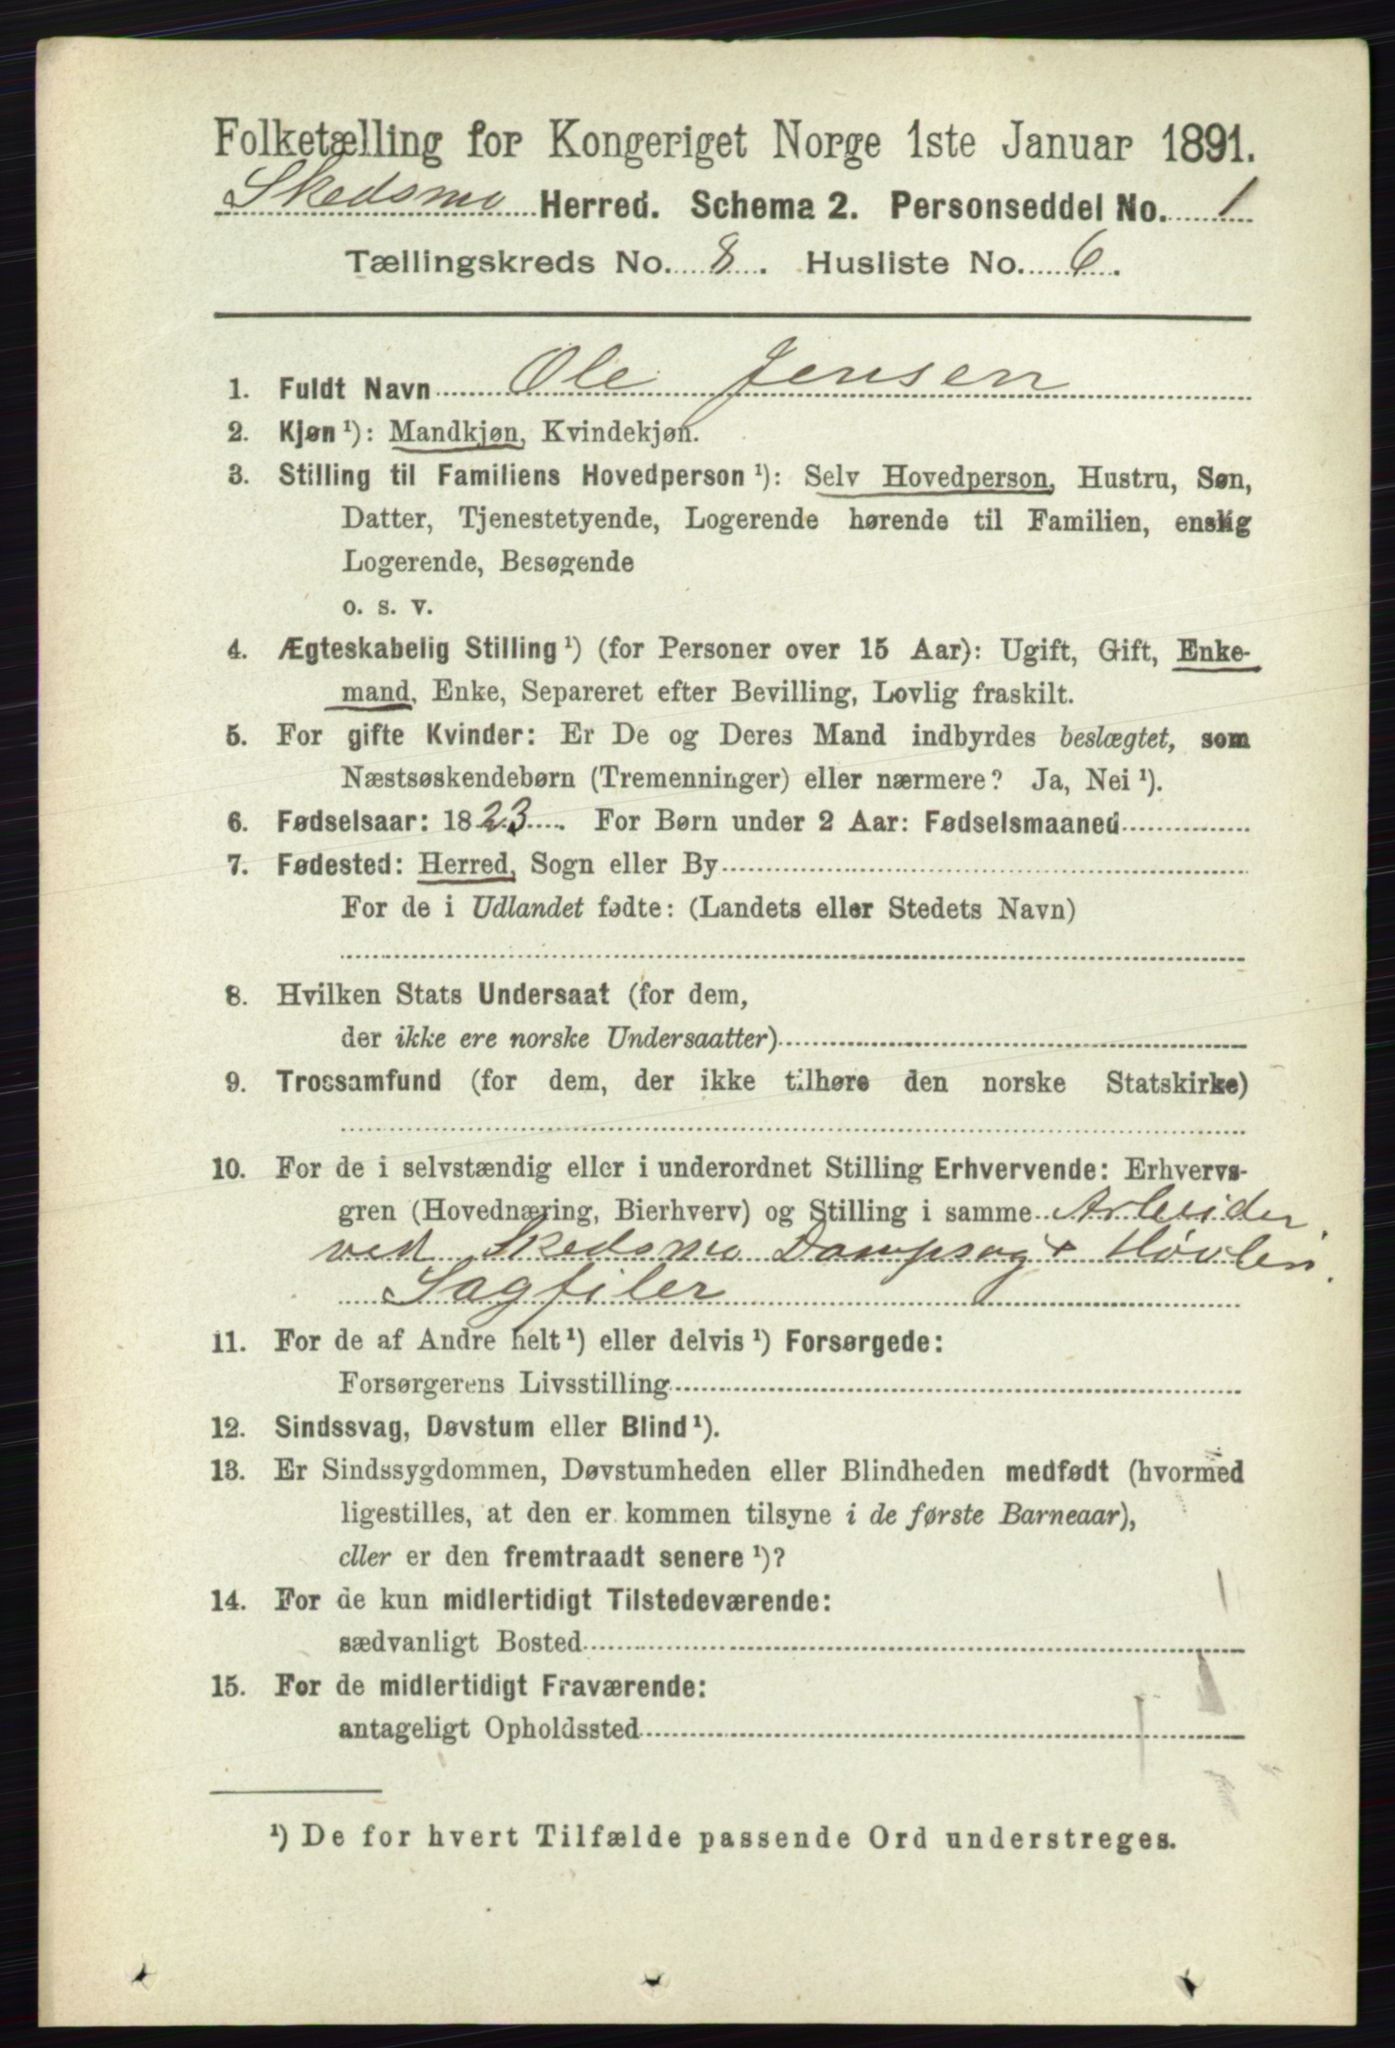 Folketælling for Kongeriget Norge 1ste Januar 1891.
Skedsmo Herred. Schema 2. Personseddel No. 1
Tællingskreds No. 8. Husliste No. 6.
1. Fuldt Navn Ole Jensen
2. Kjøn ¹): Mandkjøn, Kvindekjøn.
3. Stilling til Familiens Hovedperson ¹): Selv Hovedperson, Hustru, Søn,
Datter, Tjenestetyende, Logerende hørende til Familien, enslig
Logerende, Besøgende
o. s. v.
4. Ægteskabelig Stilling ¹) (for Personer over 15 Aar): Ugift, Gift, Enke-
mand, Enke, Separeret efter Bevilling, Lovlig fraskilt.
5. For gifte Kvinder: Er De og Deres Mand indbyrdes beslægtet, som
Næstsøskendebørn (Tremenninger) eller nærmere? Ja, Nei ¹).
6. Fødselsaar: 1823. For Børn under 2 Aar: Fødselsmaaned
7. Fødested: Herred, Sogn eller By
For de i Udlandet fødte: (Landets eller Stedets Navn)
8. Hvilken Stats Undersaat (for dem,
der ikke ere norske Undersaatter)
9. Trossamfund (for dem, der ikke tilhøre den norske Statskirke)
10. For de i selvstændig eller i underordnet Stilling Erhvervende: Erhvervs-
gren (Hovednæring, Bierhverv) og Stilling i samme Arbeider
ved Skedsmo Dampsag + Høvleri.
Sagfiler
11. For de af Andre helt ¹) eller delvis ¹) Forsørgede:
Forsørgerens Livsstilling
12. Sindssvag, Døvstum eller Blind ¹).
13. Er Sindssygdommen, Døvstumheden eller Blindheden medfødt (hvormed
ligestilles, at den er kommen tilsyne i de første Barneaar),
eller er den fremtraadt senere ¹)?
14. For de kun midlertidigt Tilstedeværende:
sædvanligt Bosted
15. For de midlertidigt Fraværende:
antageligt Opholdssted
¹) De for hvert Tilfælde passende Ord understreges.